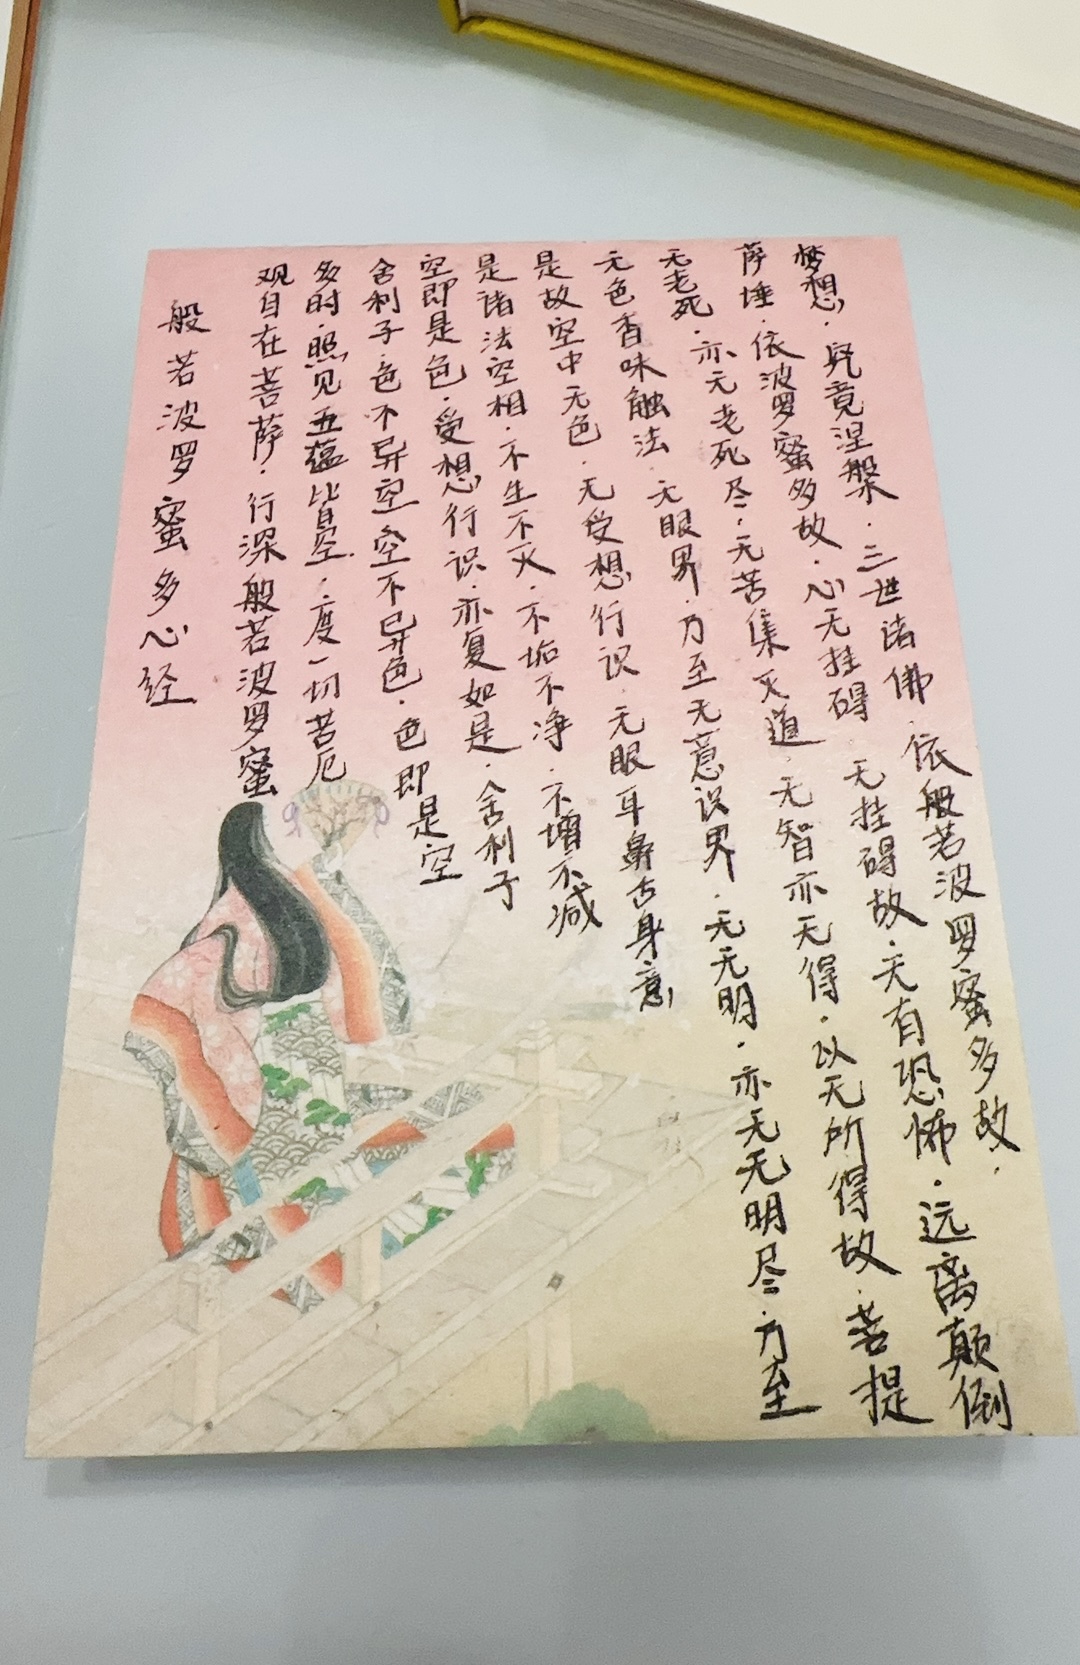 般若波罗蜜多心经
观自在菩萨·行深般若波罗蜜
多时·照见五蕴皆空·度一切苦厄
舍利子·色不异空空不异色·色即是空
空即是色·受想行识·亦复如是·舍利子
是诸法空相·不生不灭·不垢不净·不增不减
是故空中无色·无受想行识·无眼耳鼻舌身意
无色香味触法·无眼界·乃至无意识界·无无明·亦无无明尽·乃至
无老死·亦无老死尽·无苦集灭道·无智亦无得·以无所得故·菩提
萨埵·依波罗蜜多故·心无挂碍 无挂碍故·无有恐怖·远离颠倒
梦想·究竟涅槃·三世诸佛·依般若波罗蜜多故·